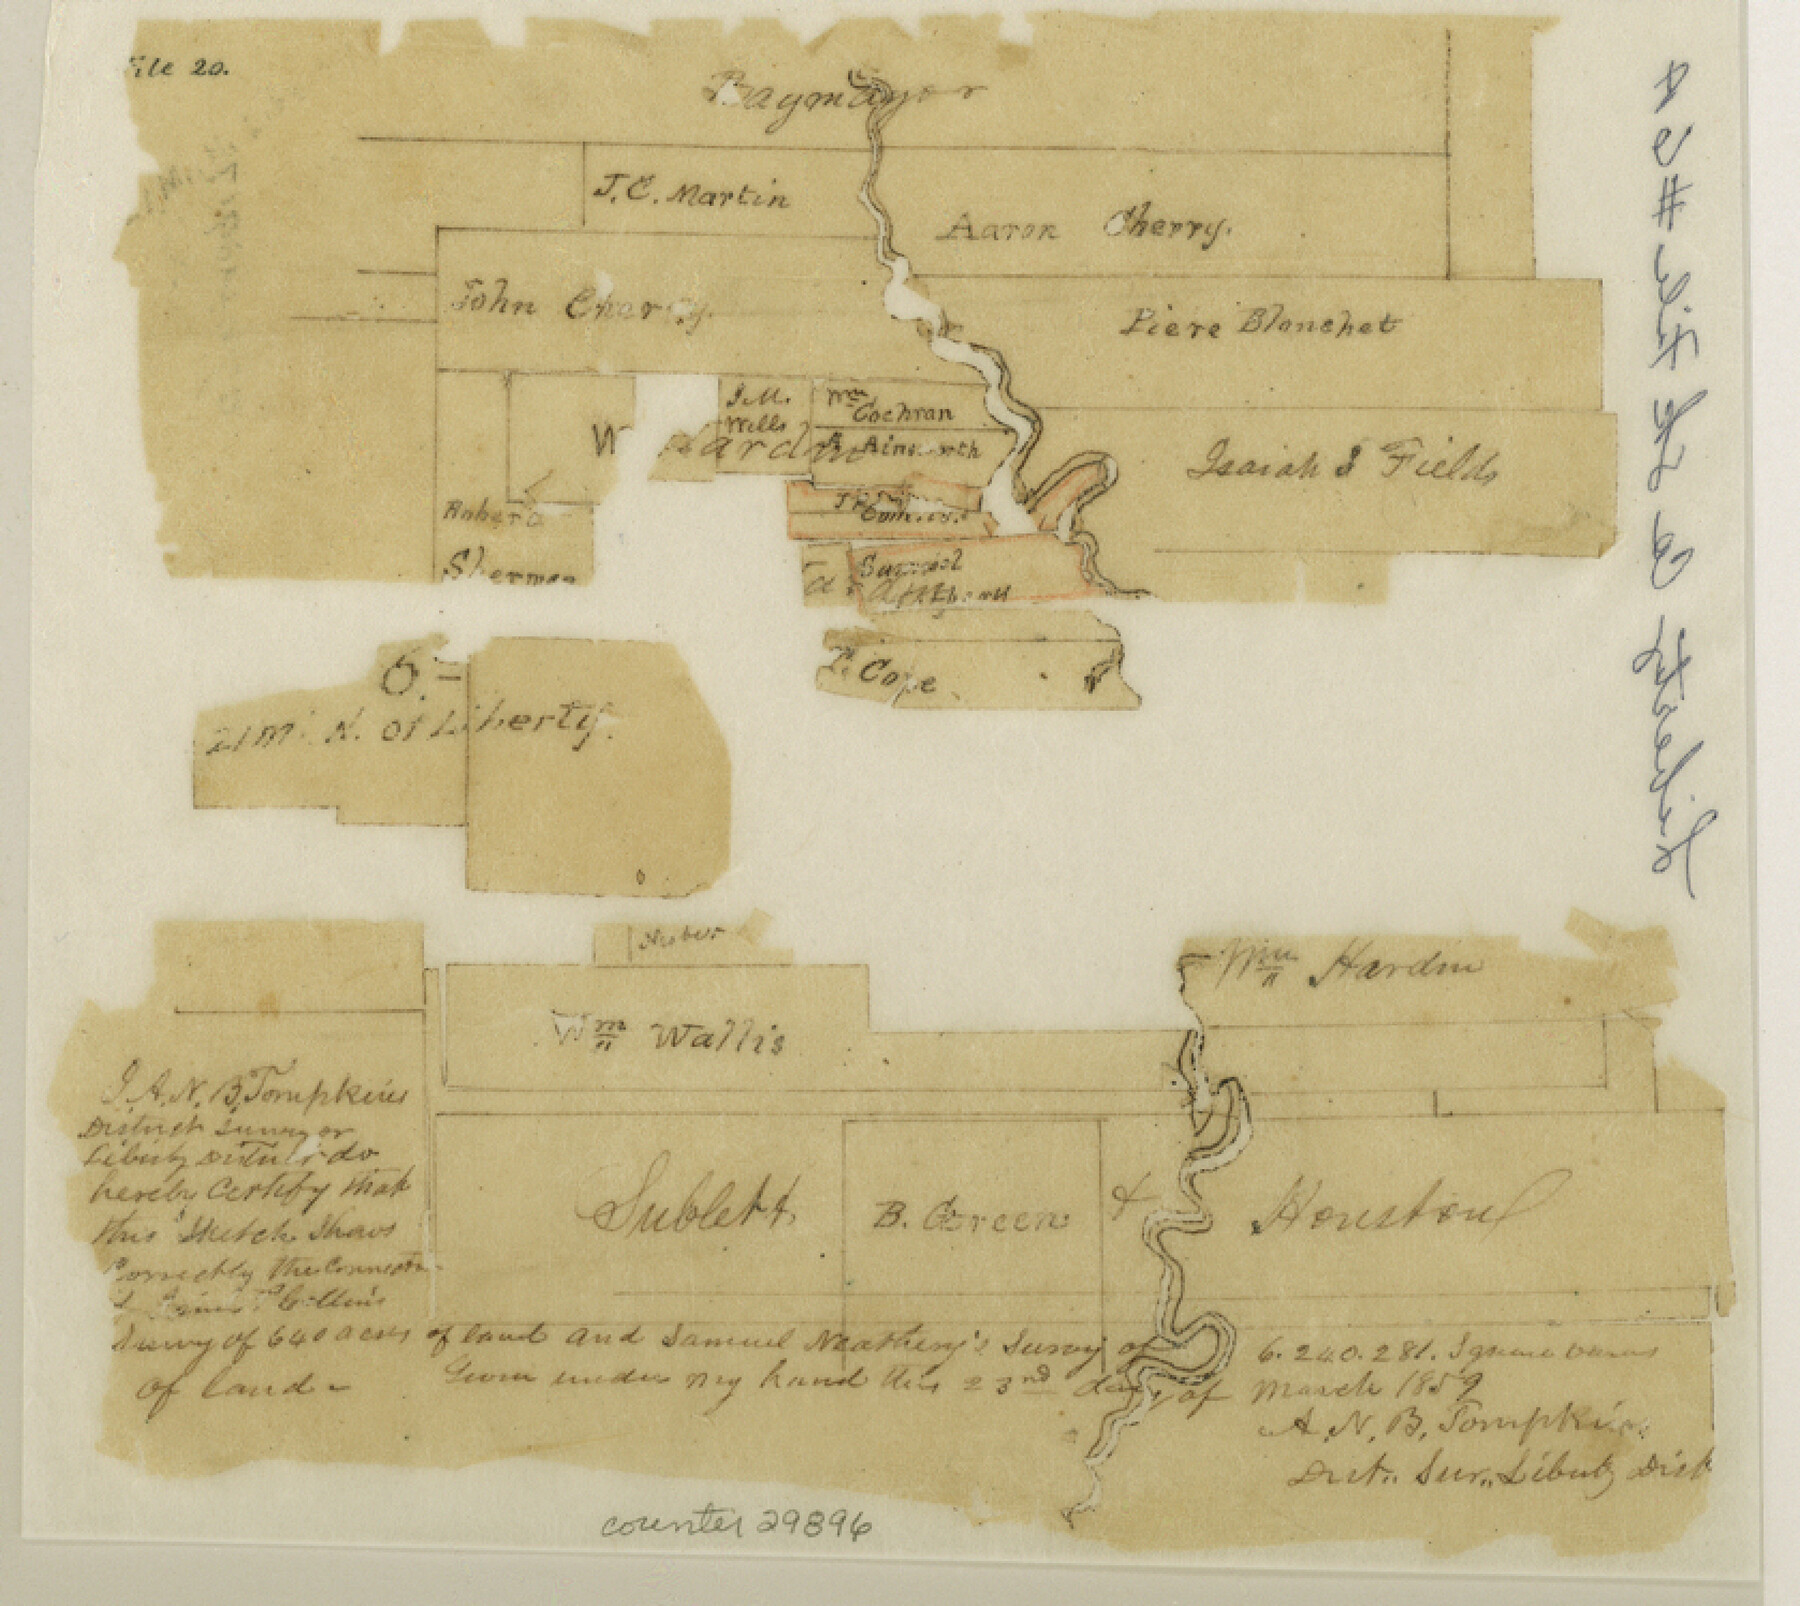 File 20.
Raymayor
J. C. Martin
Aaron Cherry.
John Cherry.
Piere Blonchet
J. M.
Wells
Wm
Cochran
Ainsworth
W Hardin
Isaiah Fields
Robert
Sherman
Samuel
T. Cope
21 M. N. of Liberty.
Wm Hardin
Wm Wallis
Sublett
B. Green
& Houston
I, A. N. B. Tompkins
District Surveyor
Liberty District do
hereby Certify that
this Sketch Shows
Correctly the Connection
Collins
Survey of 640 acres of land and Samuel Neatherys Survey of 6.240.281. Square varas
of land - Given under my hand this 23rd day of March 1859
A. N. B. Tompkins
Dist. Sur. Liberty Dist
counter 29896